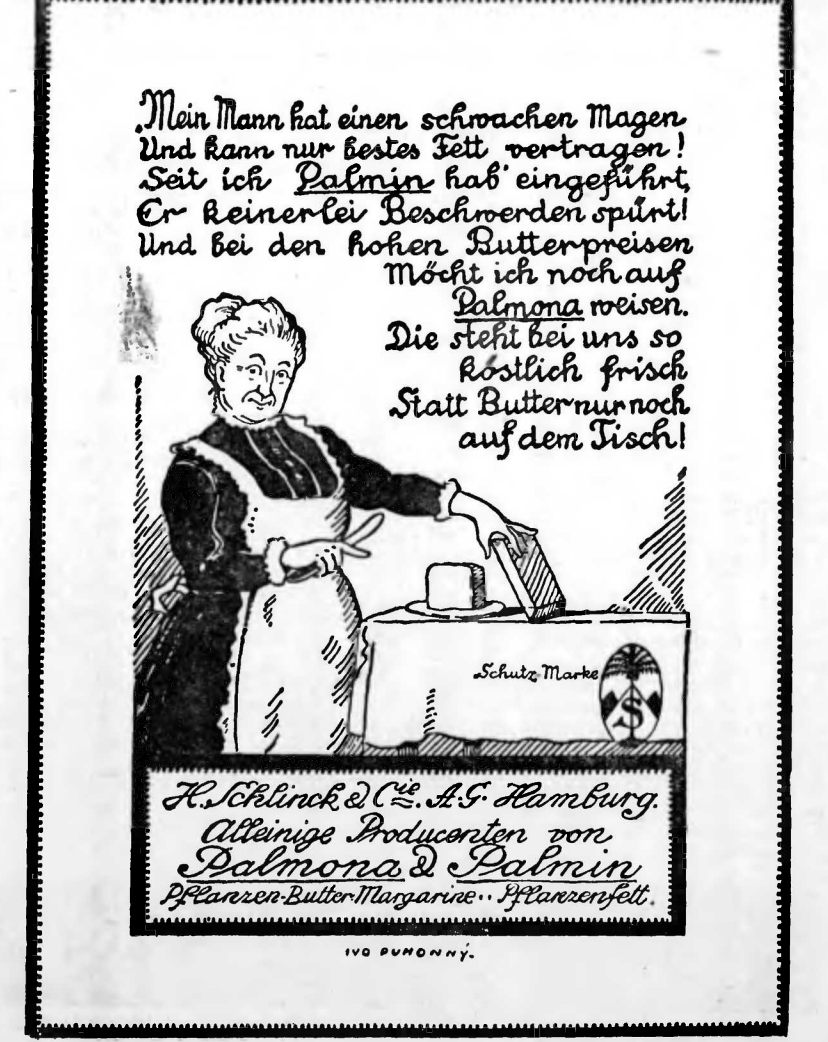 „Mein Mann hat einen schwachen Magen
Und kann nur bestes Fett vertragen!
Seit ich Palmin hab' eingeführt,
Er keinerlei Beschwerden spürt!
Und bei den hohen Butterpreisen
Möcht ich noch auf
Palmona weisen.
Die steht bei uns so
köstlich frisch
Statt Butter nur noch
auf dem Tisch!
Schutz Marke
S
H. Schlinck & Cie. A.G. Hamburg.
Alleinige Producenten von
Palmona & Palmin
Pflanzen-Butter-Margarine .. Pflanzenfett.
IVO PUHONNÝ.